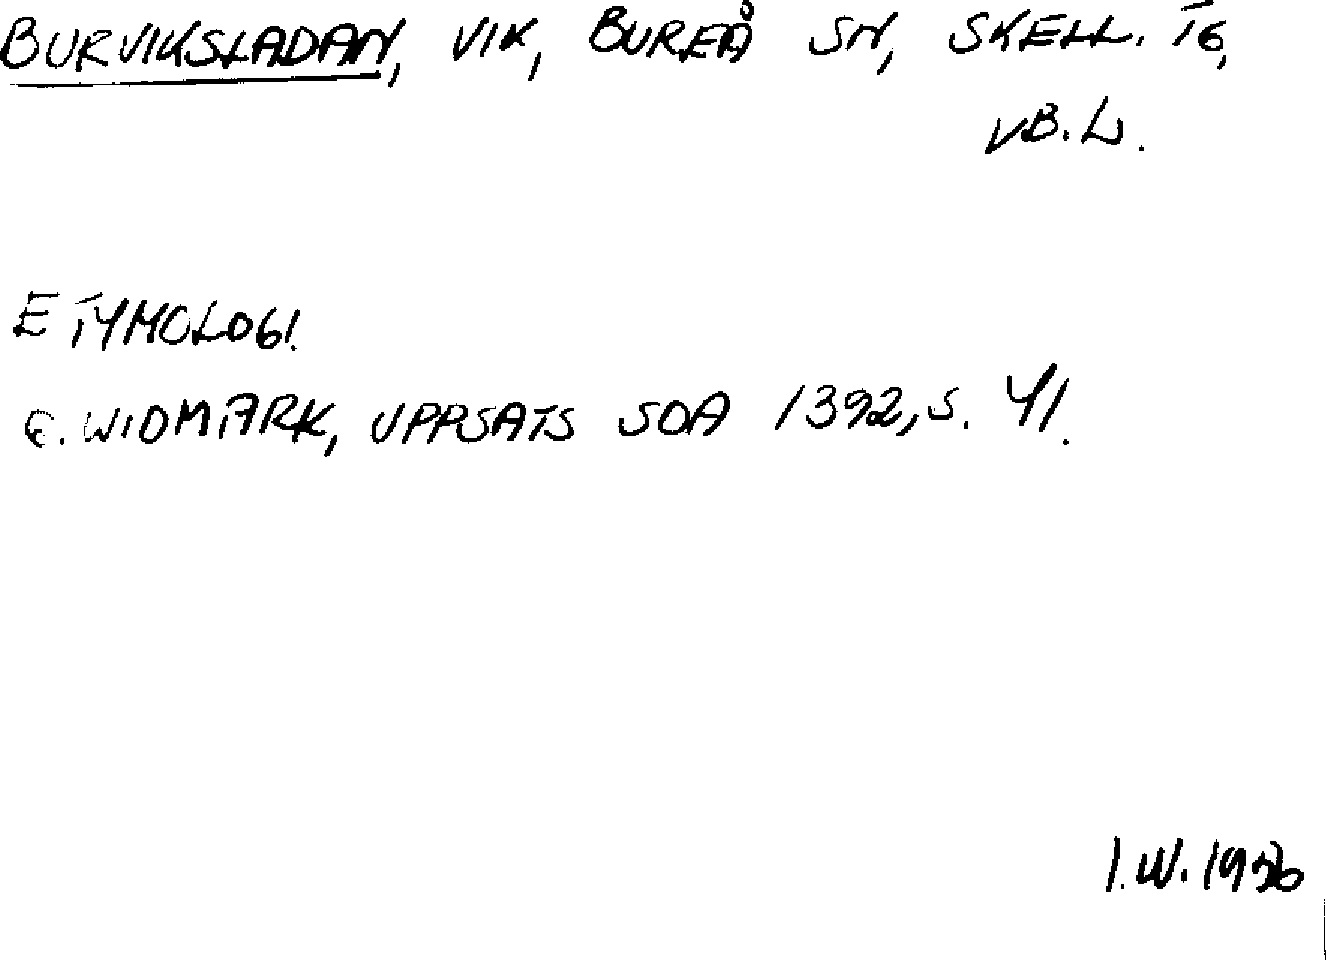 BURVIKSLADAN, VIK, BUREÅ SN, SKELL. TG,
VB. L.
ETYMOLOGI.
G. WIDMARK, UPPSATS SOA 1392, S. 41.
I.W. 1956